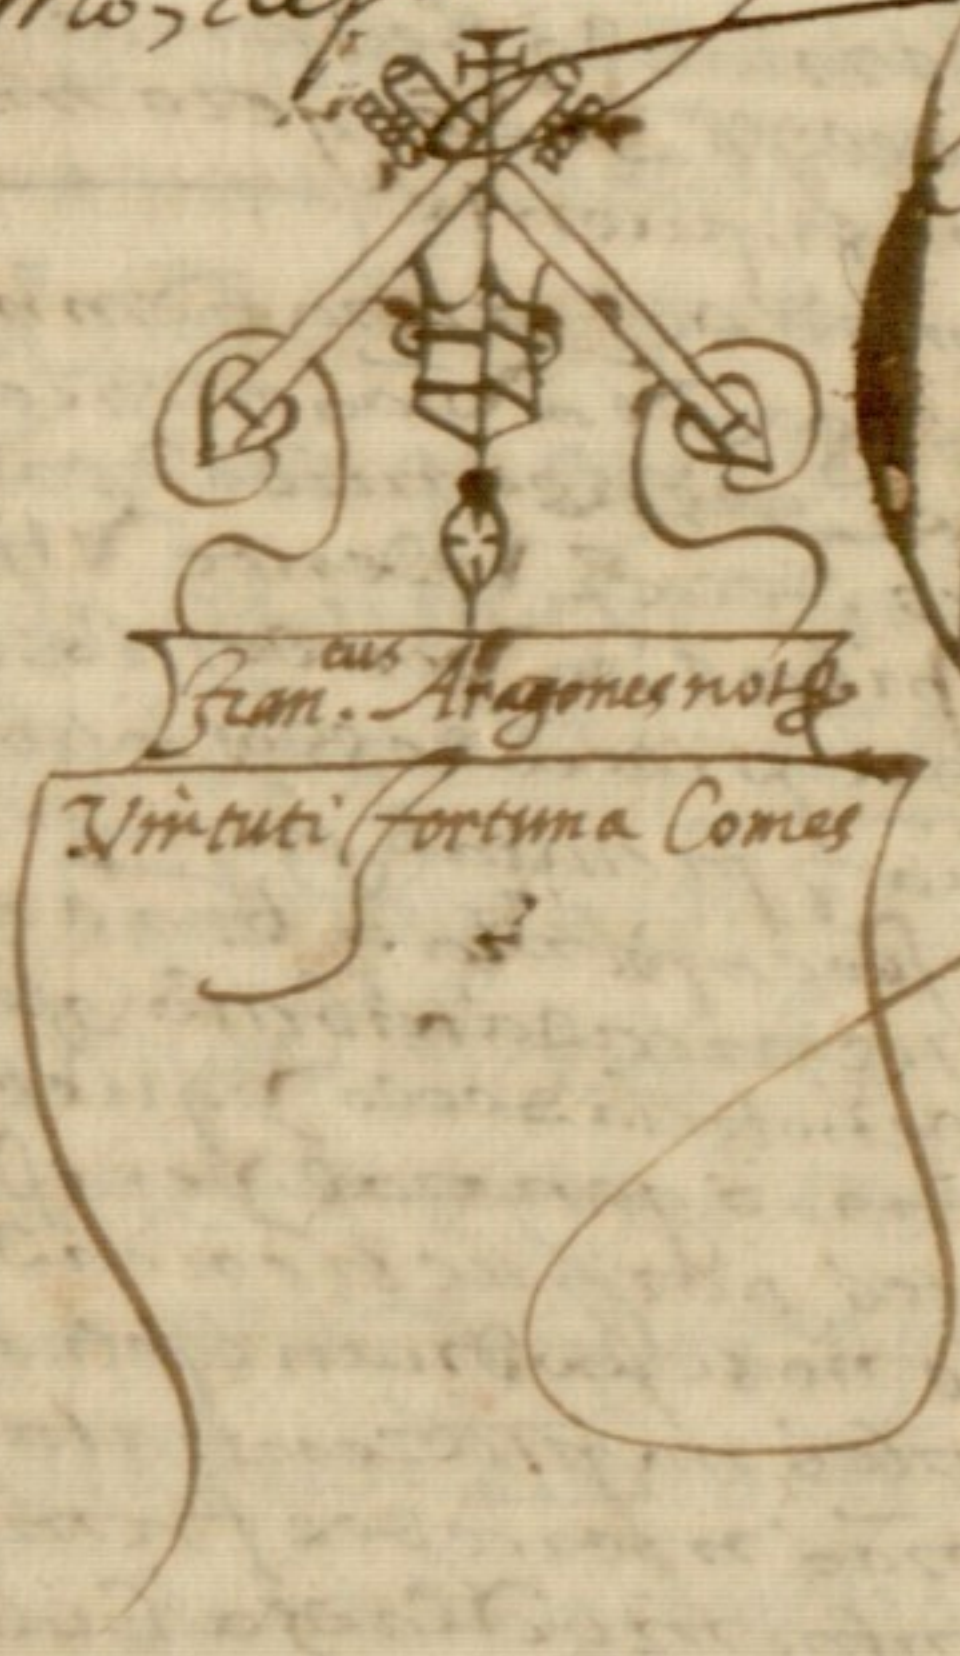 Fran.cus Aragones not
Virtuti fortuna Comes